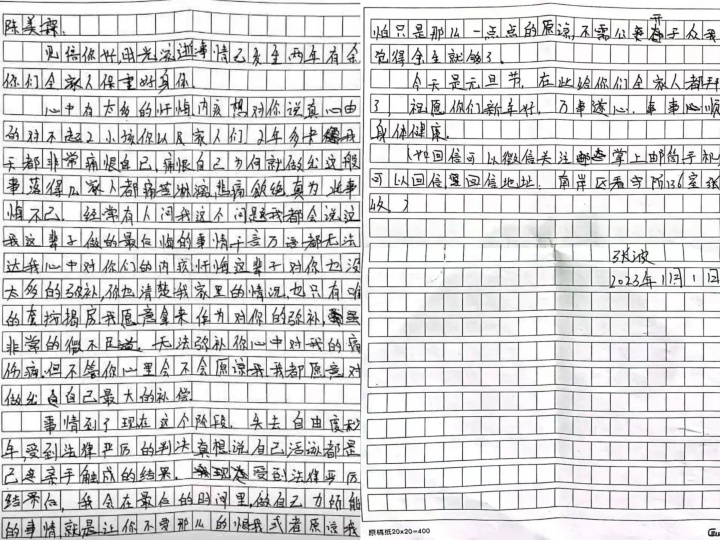 陈美霖:
见信你好,时光流逝事情已发生两年有余
你们全家人保重好身体
心中有太多的忏悔内疚想对你说真心由
的对不起2小孩你以及家人们,2年多来我
天都非常痛恨自己,痛恨自己为何就做出这般
事落得 家人都痛苦淋漓悲痛欲绝真为此事
悔不已. 经常有人问我这个问题我都会说这
我这辈子做的最后悔的事情千言万语都无法
达我心中对你们的内疚忏悔这辈子对你也没
太多的弥补,你也清楚我家里的情况,也只有唯
的 房我愿意拿来作为对你的弥补,
非常的微不足道 无法弥补你心中对我的痛
伤痕.但不管你心里会不会原谅我我都愿意对
做出自己最大的补偿.
事情到了现在这个阶段. 失去自由度
年,受到法律严厉的判决真想说自己活该都是
己亲手 成的结果. 受到法律严厉
结果后, 我会在最后的时间里,做自己力所能
的事情,就是让你不要那么的恨我或者原谅我
怕只是那么一点点的原谅,不需公开于众我
觉得余生就够了.
今天是元旦节,在此给你们全家人都
了,祝愿你们新年好,万事遂心,事事心顺
身体健康.
(如回信可以微信关注 掌上邮局手机
可以回信 回信地址: 南岸区看守所136室张
收)
张波
2023年1月1日
原稿纸20x20=400